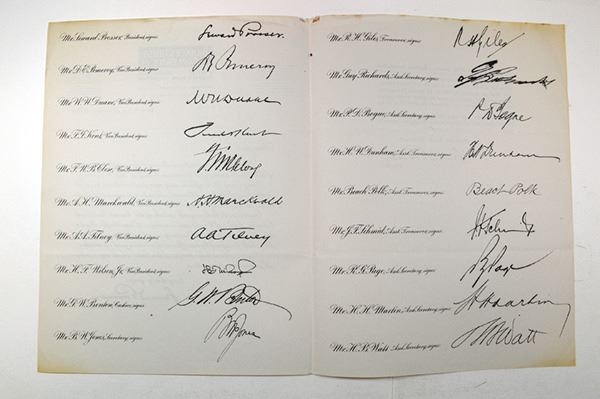 Mr. Seward Prosser, President, signs Seward Prosser
Mr. D. E. Pomeroy, Vice President, signs D E Pomeroy
Mr. W. W. Duane, Vice President, signs
Mr. F. I. Kent, Vice President, signs Fred I Kent
Mr. F. W. B. Close, Vice President, signs
Mr. A. H. Marckwald, Vice President, signs A. H Marckwald
Mr. A. A. Tilney, Vice President, signs A A Tilney
Mr. H. F. Wilson, Jr. Vice President, signs
Mr. G. W. Benton, Cashier, signs G. W. Benton
Mr. B. W. Jones, Secretary, signs B W Jones
Mr. R. H. Giles, Treasurer, signs R H Giles
Mr. Guy Richards, Asst. Secretary, signs
Mr. P. D. Bogue, Asst. Secretary, signs P D Bogue
Mr. H. W. Dunham, Asst. Treasurer, signs
Mr. Beach Polk, Asst. Treasurer, signs Beach Polk
Mr. J. F. Schmid, Asst. Treasurer, signs
Mr. R. G. Page, Asst. Secretary, signs
Mr. H. H. Martin, Asst. Secretary, signs H H Martin
Mr. H. B. Watt, Asst. Secretary, signs H B Watt